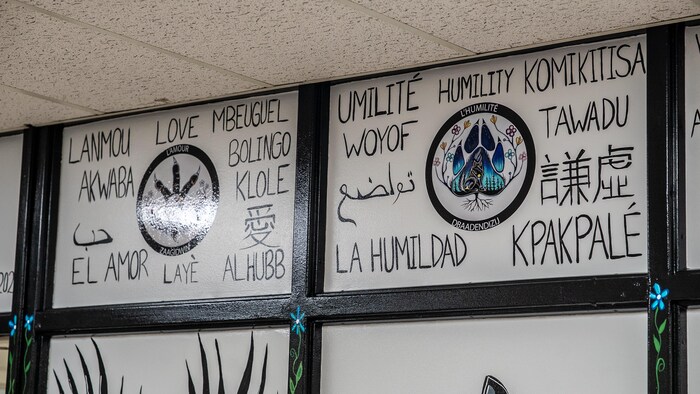 LANMOU LOVE MBEUGUEL
AKWABA
BOLINGO
KLOLE
L'AMOUR
حب
愛
EL AMOR LAYÈ ALHUBB
UMILITÉ HUMILITY KOMIKITISA
WOYOF
TAWADU
L'HUMILITÉ
DRAADENDIZU
تواضع
謙虛
LA HUMILDAD KPAKPALÉ